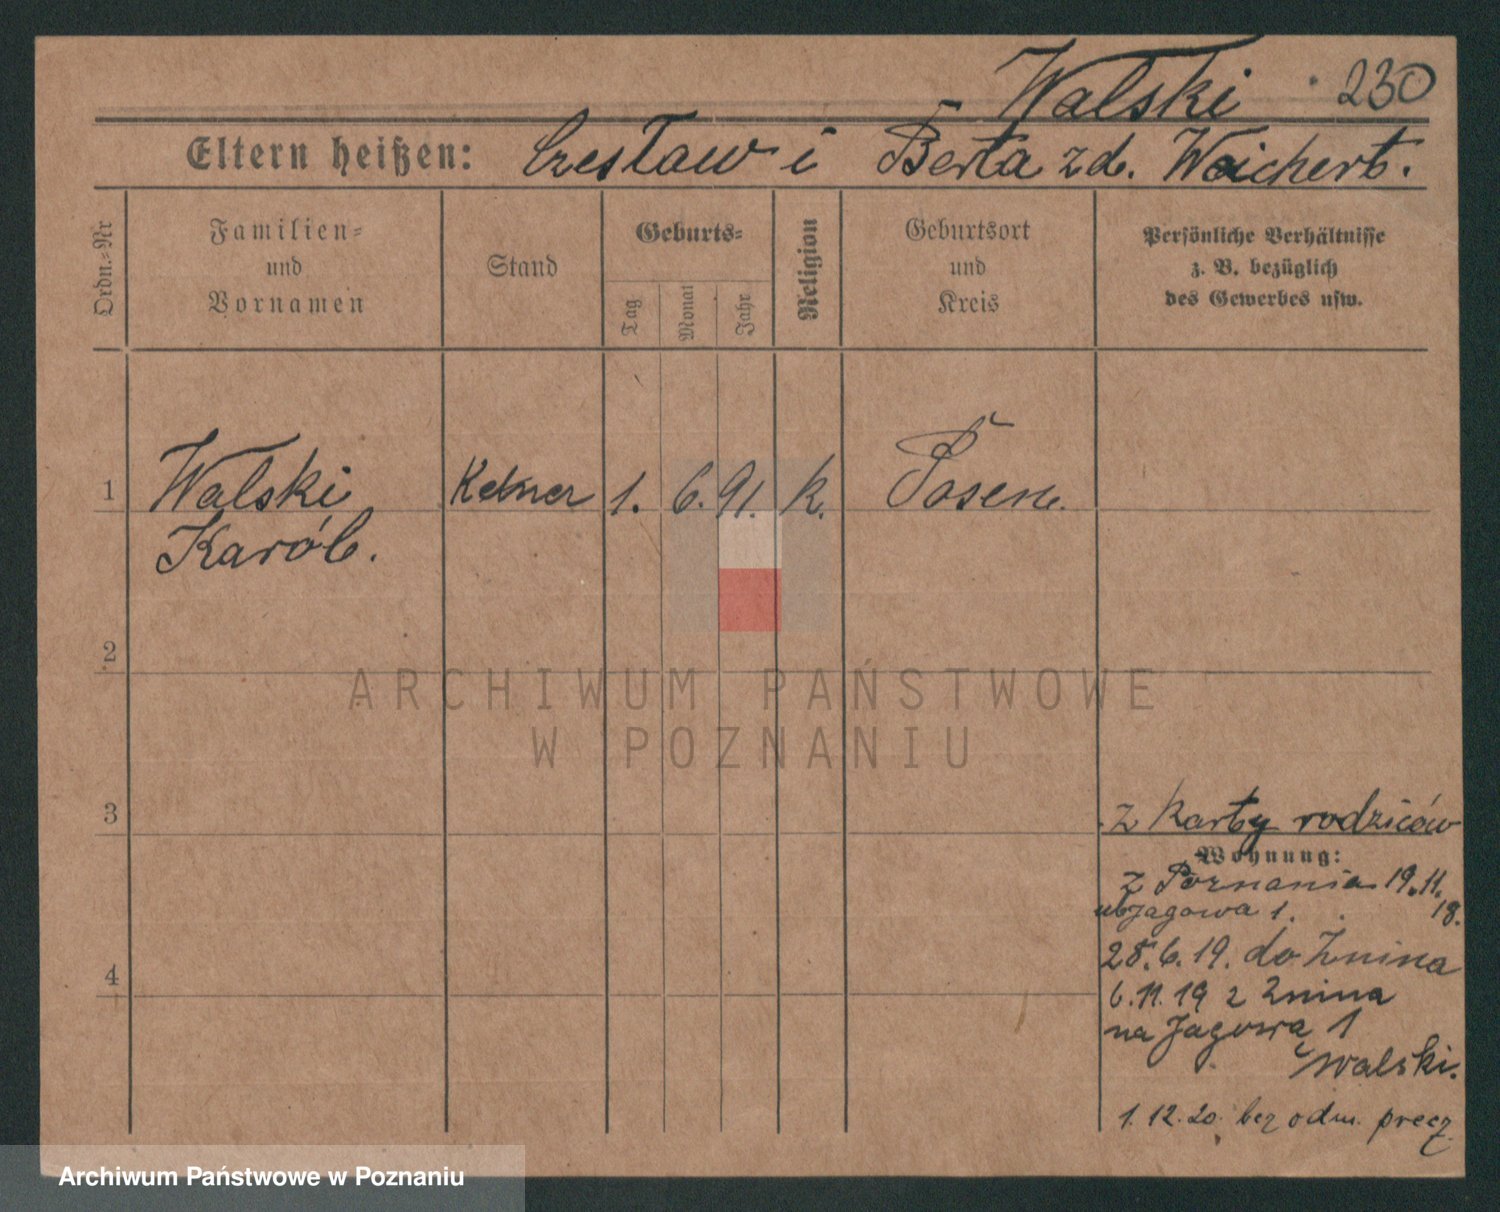 Walski 230
Eltern heißen: Czesław i Berta z d. Weichert.
Ordn.-Nr
Familien-
und
Vornamen
Stand
Geburts-
Tag
Monat
Jahr
Religion
Geburtsort
und
Kreis
Persönliche Verhältnisse
z. B. bezüglich
des Gewerbes usw.
1 Walski Kelner 1. 6. 91. k. Posen.
Karól.
2
ARCHIWUM PAŃSTWOWE
W POZNANIU
3
z karty rodziców
Wohnung:
z Poznania 19.11.
Jagowa 1. 18.
4
28.6.19. do Żnina
6.11.19 z Żnina
na Jagowa 1
Walski.
1.12.20. bez odm. precz
Archiwum Państwowe w Poznaniu